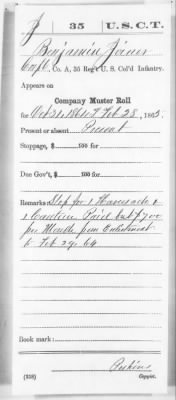 J 35 U.S.C.T.
Benjamin Joiner
Corpl., Co. A, 35 Reg't U. S. Col'd Infantry.
Appears on
Company Muster Roll
for Oct 31, 1864 to Feb 28, 1865.
Present or absent Present
Stoppage, $ 100 for
Due Gov't, $ 100 for
Remarks Stop for 1 Haversack &
1 Canteen Paid but $7.00
per Month from Enlistment
to Feb 29, 64
Book mark:
Perkins
(358) Copyist.